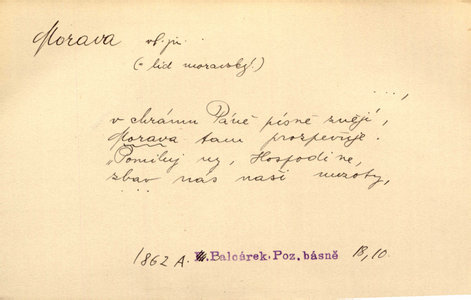 Morava vl. jm.
(= lid moravský.)
. . . ,
v chrámu Páně písně znějí,
Morava tam prozpěvuje.
„Pomiluj ny, Hospodine,
zbav nás naší nuzoty,
1862 A. Balcárek. Poz. básně 18, 10.